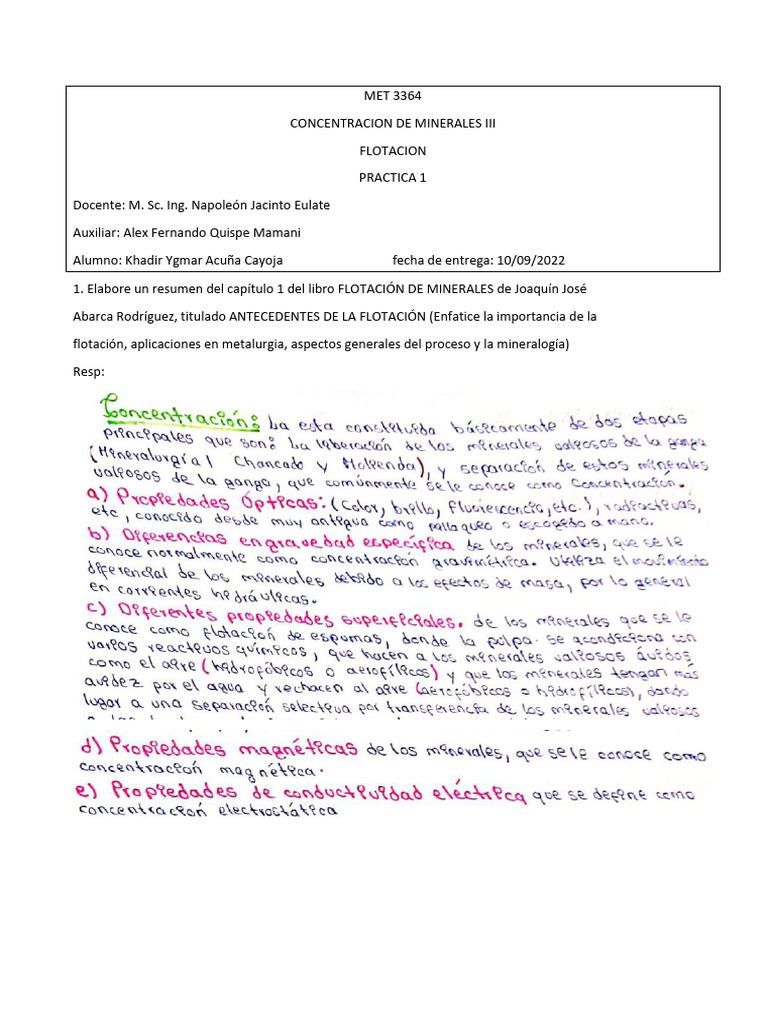 MET 3364
CONCENTRACION DE MINERALES III
FLOTACION
PRACTICA 1
Docente: M. Sc. Ing. Napoleón Jacinto Eulate
Auxiliar: Alex Fernando Quispe Mamani
Alumno: Khadir Ygmar Acuña Cayoja fecha de entrega: 10/09/2022
1. Elabore un resumen del capítulo 1 del libro FLOTACIÓN DE MINERALES de Joaquín José
Abarca Rodríguez, titulado ANTECEDENTES DE LA FLOTACIÓN (Enfatice la importancia de la
flotación, aplicaciones en metalurgia, aspectos generales del proceso y la mineralogía)
Resp:
Concentración: La esta constituida básicamente de dos etapas
principales que son: La liberación de los minerales valiosos de la ganga
(Mineralurgia/ Chancado y Molienda), y separación de estos minerales
valiosos de la ganga, que comúnmente se le conoce como Concentración.
a) Propiedades Ópticas: (Color, brillo, Fluorescencia, etc.), radiactivas,
etc, conocido desde muy antigua como pallaqueo o escogido a mano.
b) Diferencias en gravedad específica de los minerales, que se le
conoce normalmente como concentración gravimétrica. Utiliza el movimiento
diferencial de los minerales debido a los efectos de masa, por lo general
en corrientes hidráulicas.
c) Diferentes propiedades superficiales. de los minerales que se le
conoce como flotacion de espumas, donde la pulpa se acondiciona con
varios reactivos químicos, que hacen a los minerales valiosos ávidos
como el aire (hidrofóbicos o aerofílicos) y que los minerales tengan más
avidez por el agua y rechacen al aire (aerofóbicos o hidrofílicos), dando
lugar a una separación selectiva por transferencia de los minerales valiosos
d) Propiedades magnéticas de los minerales, que se le conoce como
concentración magnética.
e) Propiedades de conductividad eléctrica que se define como
concentracion electrostática